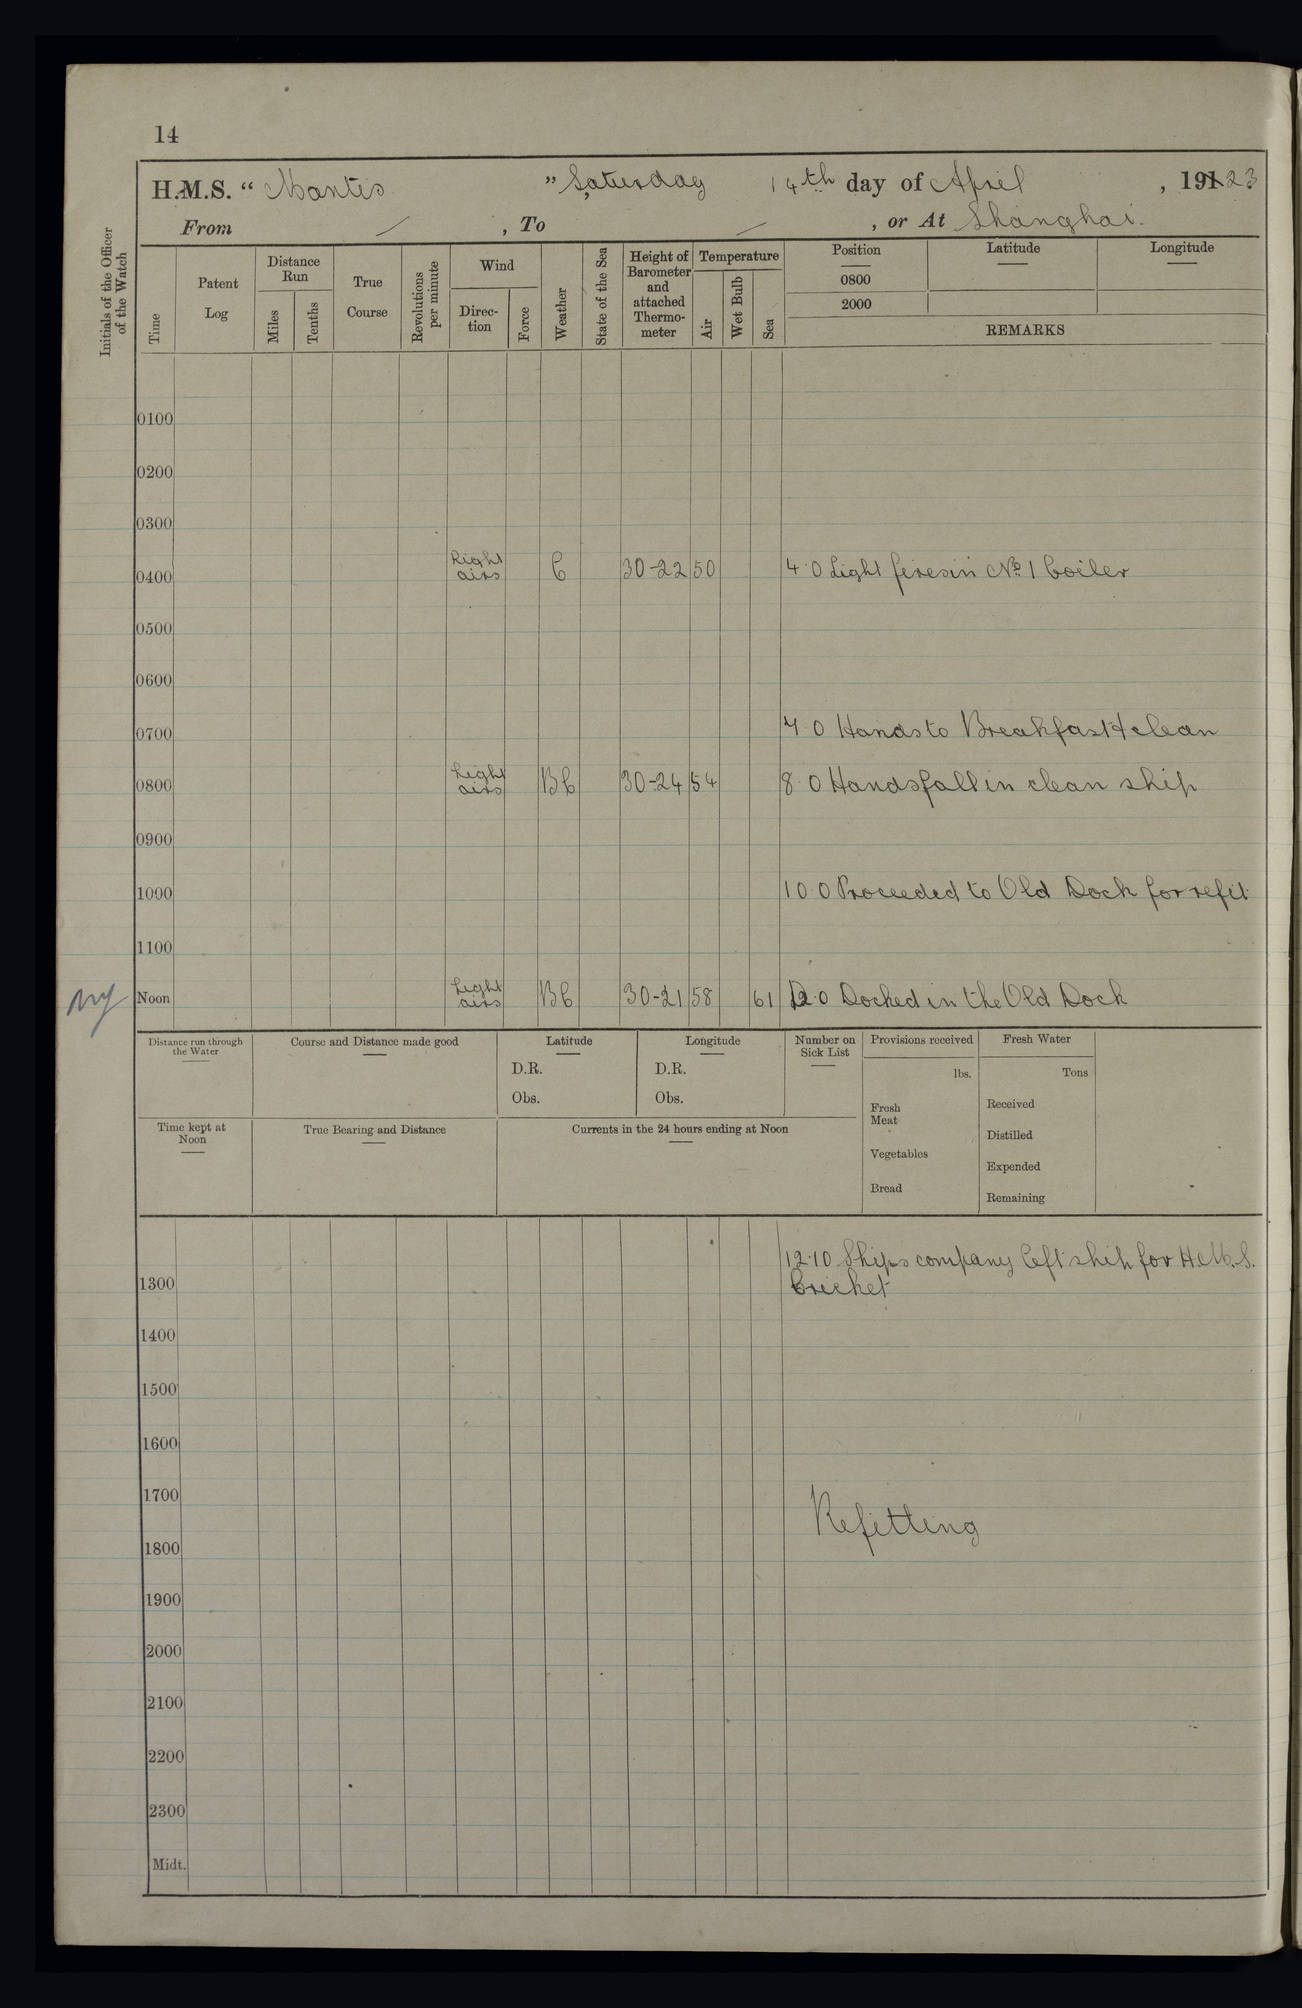 14
H.M.S. “ Mantis ” Saturday 14th day of April , 19123
From / , To / , or At Shanghai.
Initials of the Officer of the Watch
Time
Patent Log
Distance Run
Miles
Tenths
True Course
Revolutions per minute
Wind
Direction
Force
Weather
State of the Sea
Height of Barometer and attached Thermometer
Temperature
Air
Wet Bulb
Sea
Position Latitude Longitude
0800
2000
REMARKS
0100
0200
0300
0400 Light airs C 30-22 50 4.0 Light fires in No. 1 boiler
0500
0600
0700 7.0 Hands to Breakfast & clean
0800 Light airs BC 30-24 54 8.0 Hands fall in clean ship
0900
1000 10.0 Proceeded to Old Dock for refit
1100
Noon Light airs BC 30-21 58 61 12.0 Docked in the Old Dock
Distance run through the Water
Course and Distance made good
Latitude
D.R.
Obs.
Longitude
D.R.
Obs.
Number on Sick List
Provisions received
lbs.
Fresh Meat
Vegetables
Bread
Fresh Water
Tons
Received
Distilled
Expended
Remaining
Time kept at Noon
True Bearing and Distance
Currents in the 24 hours ending at Noon
12.10 Ships company left ship for H.M.S.
1300 Cricket
1400
1500
1600
1700
Refitting
1800
1900
2000
2100
2200
2300
Midt.